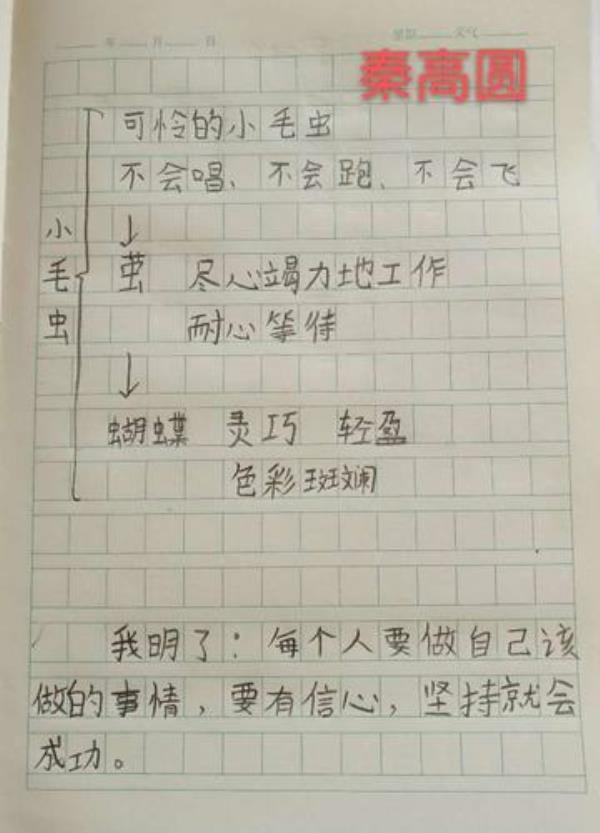 年 月 日 星期 天气
秦高圆
可怜的小毛虫
不会唱、不会跑、不会飞
小毛虫
↓
茧 尽心竭力地工作
耐心等待
↓
蝴蝶 灵巧 轻盈
色彩斑斓
我明了：每个人要做自己该
做的事情，要有信心，坚持就会
成功。